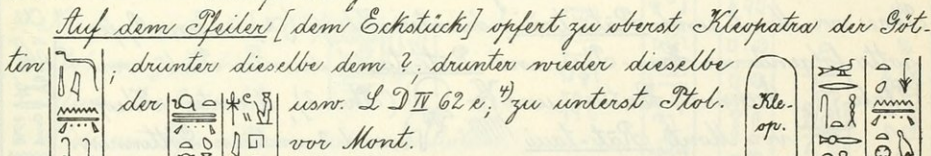 Auf dem Pfeiler [dem Eckstück] opfert zu oberst Kleopatra der Göt-
tin ; drunter dieselbe dem ? ; drunter wieder dieselbe
der usw. L D IV 62 e.⁴⁾ zu unterst Ptol. Kle-
vor Mont. op.